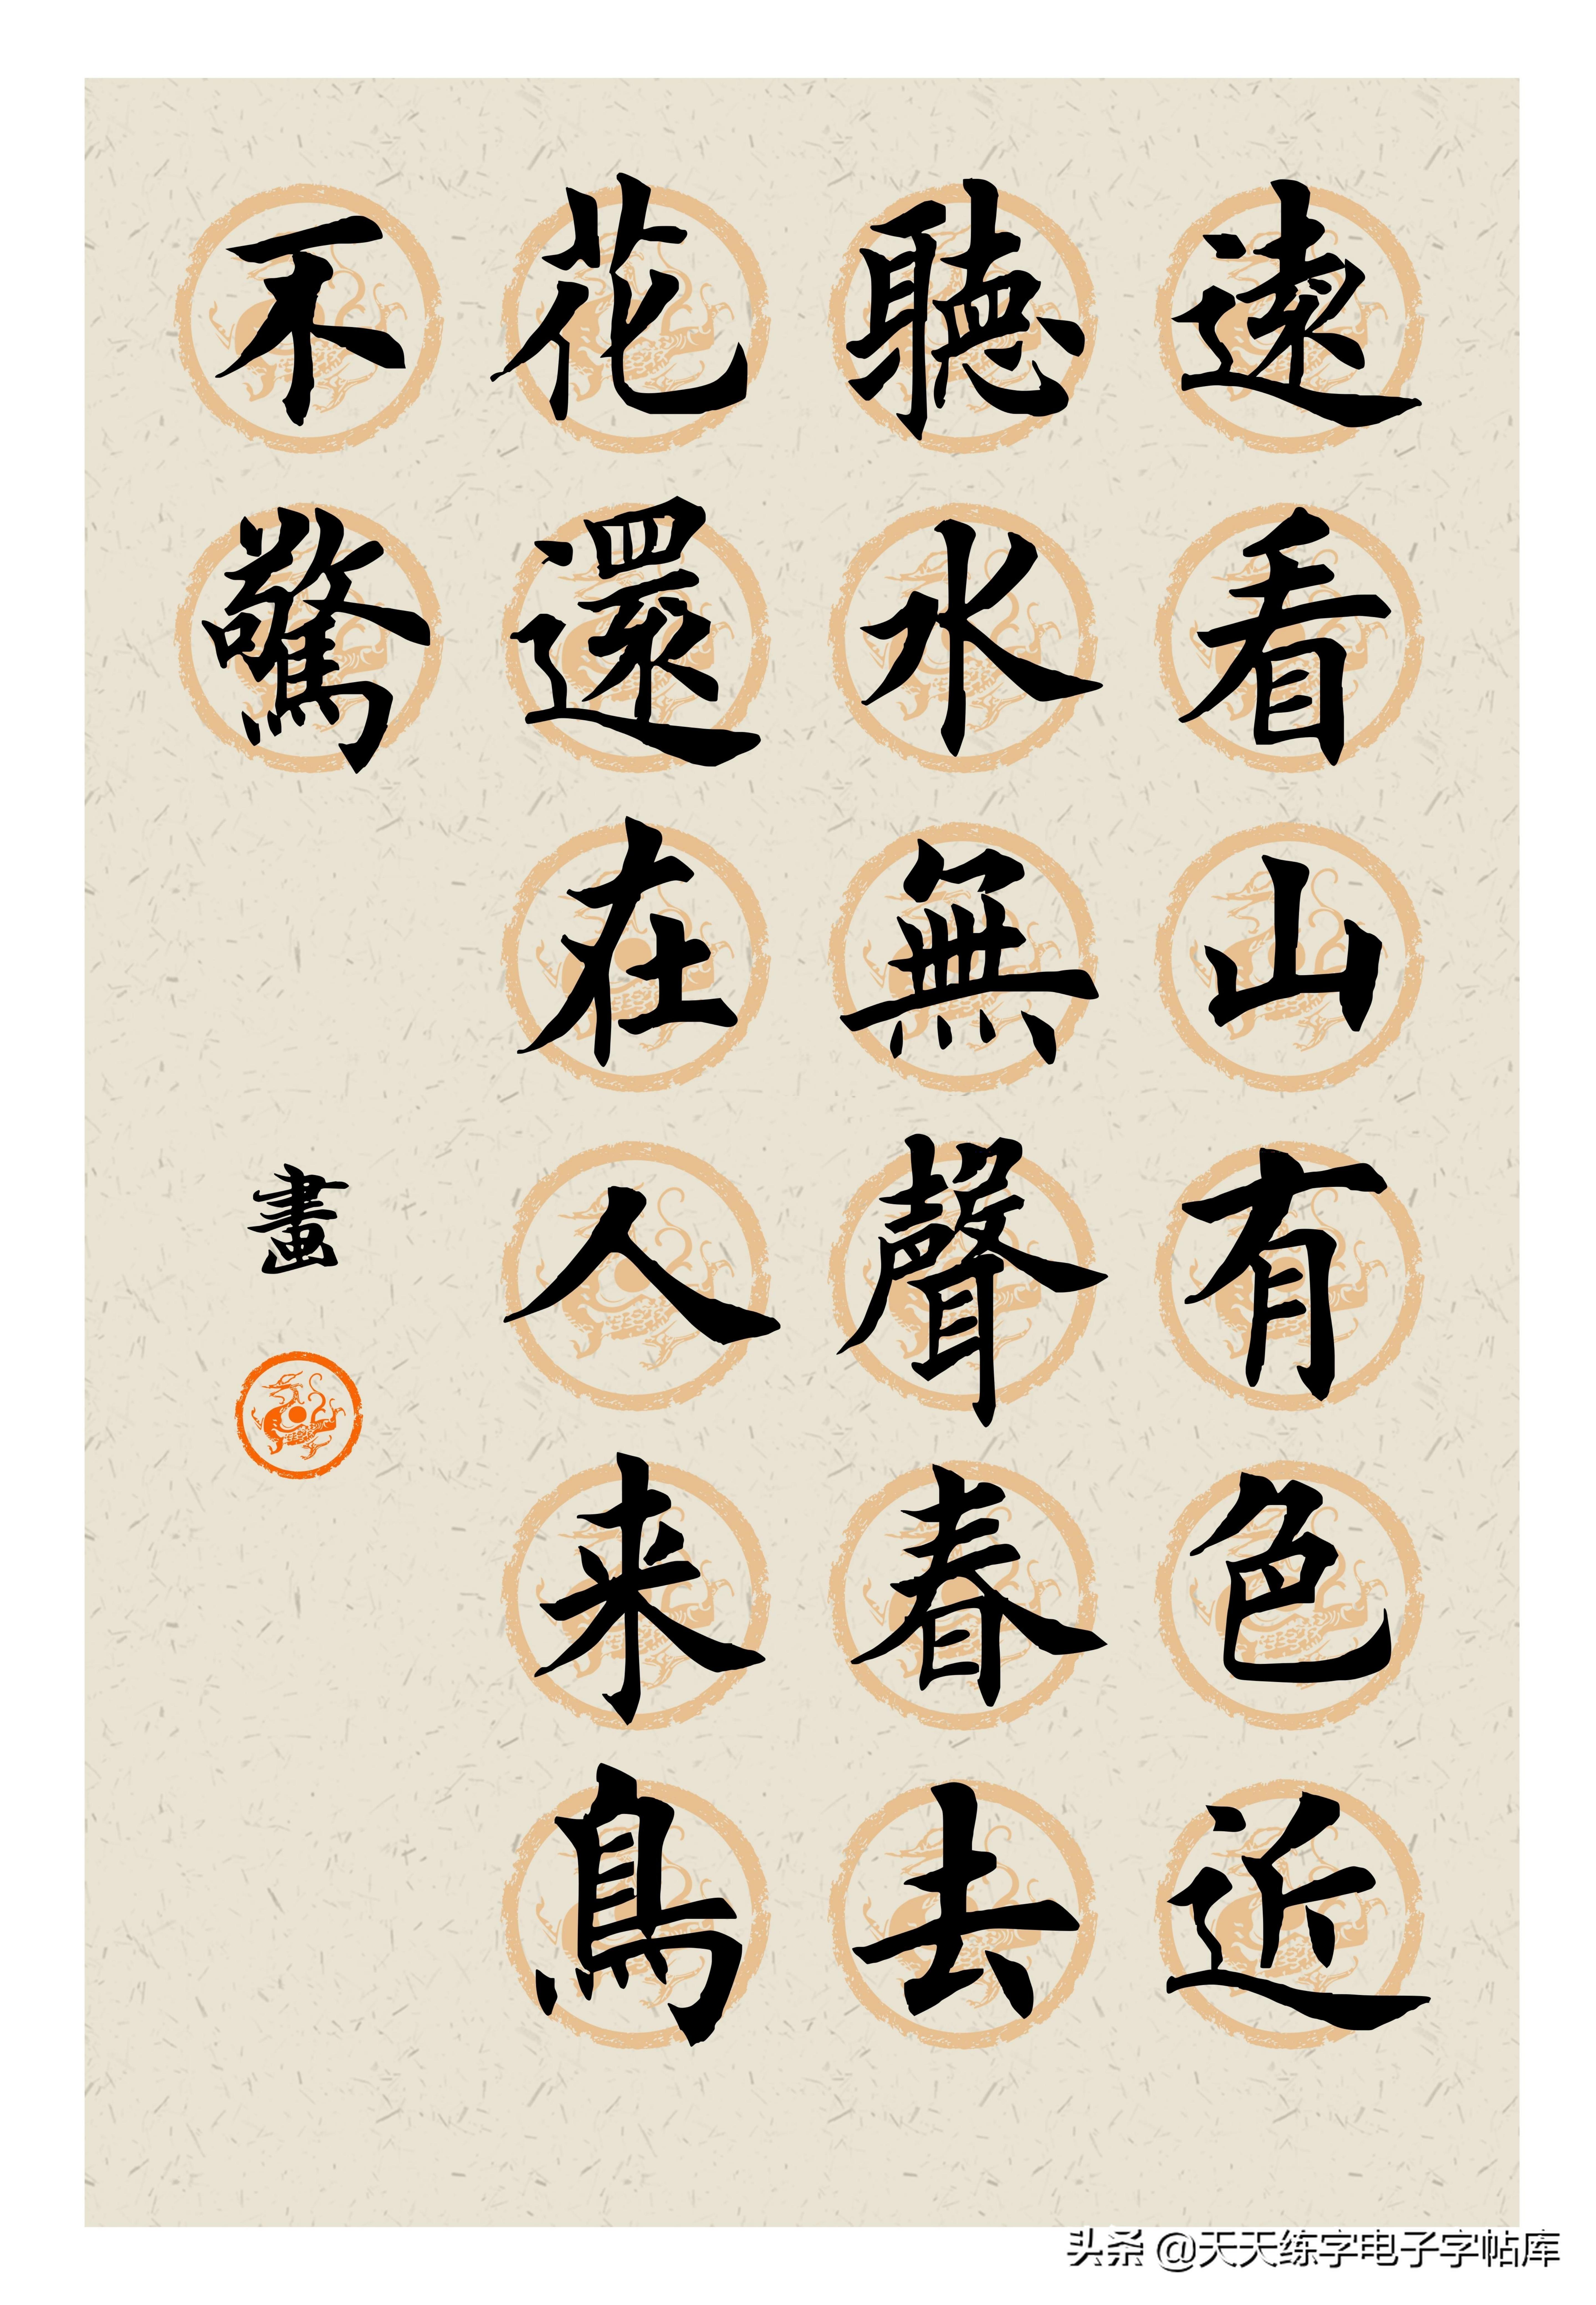 遠看山有色近
聽水無聲春去
花還在人来鳥
不驚
畫
头条 @天天练字电子字帖库